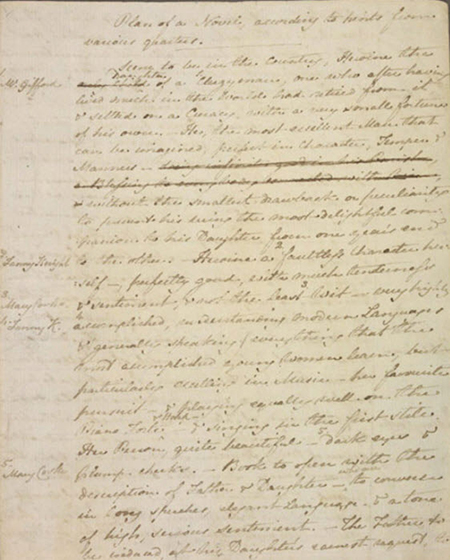 Plan of a Novel, according to hints from
various quarters.
Scene to be in the Country, Heroine the
1. Mr. Gifford
Daughter
of a Clergyman, one who after having
lived much in the World had retired from it
& settled on a Curacy, with a very small fortune
of his own. - He, the most excellent Man that
can be imagined, perfect in Character, Temper &
Manners -
without the smallest drawback or peculiarity
to prevent his being the most delightful com-
panion to his Daughter from one year's end
to the other. - Heroine a 2 faultless Character her-
2. Fanny Knight
self - perfectly good, with much tenderness
3.
& sentiment, & not the least 3 Wit - very highly
4. Fanny K.
4 accomplished, understanding modern Languages
& generally speaking everything that the
most accomplished young Women learn, but
particularly excelling in Music - her favourite
pursuit - & playing equally well on the
Piano Forte & Harp - & singing in the first stile.
Her Person, quite beautiful - 5 dark eyes &
5. Mary Cooke
plump cheeks. - Book to open with the
description of Father & Daughter - to converse
in long speeches, elegant Language - & a tone
of high, serious sentiment. - The Father to
be induced, at his Daughter's earnest request, to